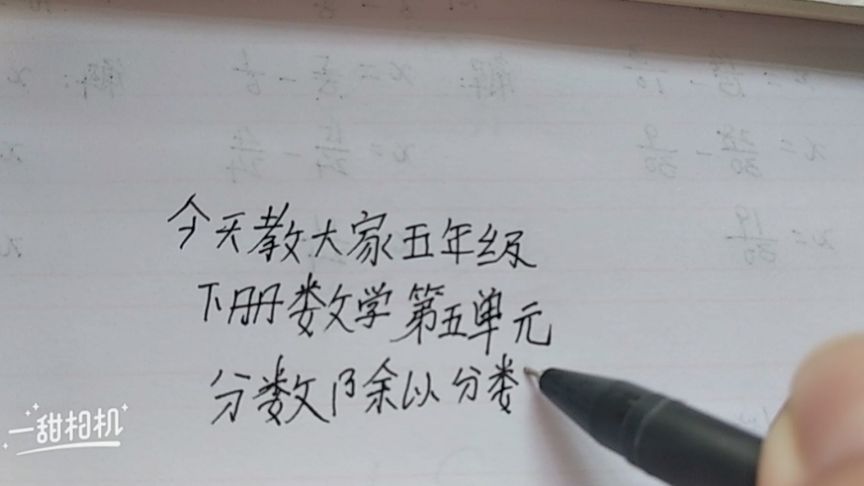 今天教大家五年级
下册数学第五单元
分数除以分娄
一甜相机